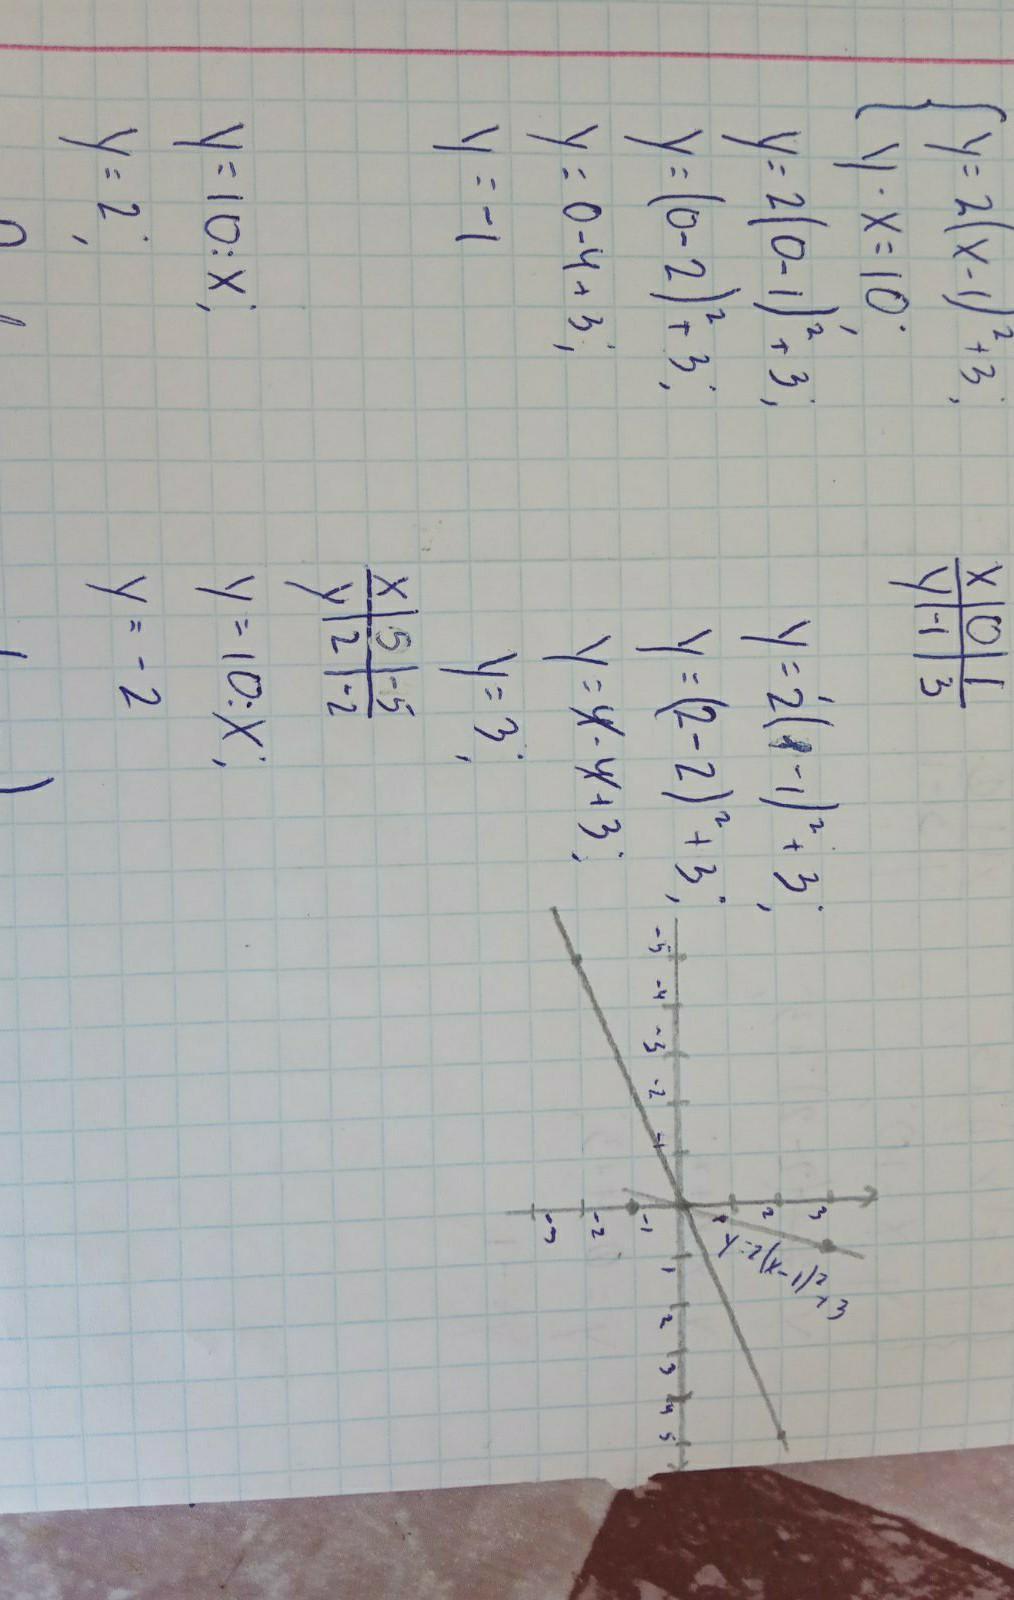 { y = 2(x-1)² + 3;
y · x = 10;
x | 0 | 1
y | -1 | 3
y = 2(0-1)² + 3;
y = (0-2)² + 3;
y = 0-4+3;
y = -1
y = 2(1-1)² + 3;
y = (2-2)² + 3;
y = 4-4+3;
y = 3;
x | 5 | -5
y | 2 | -2
y = 10:x;
y = 2;
y = 10:x;
y = -2
3
2
y=2(x-1)²+3
-5 -4 -3 -2 -1 1 2 3 4 5
-1
-2
-3